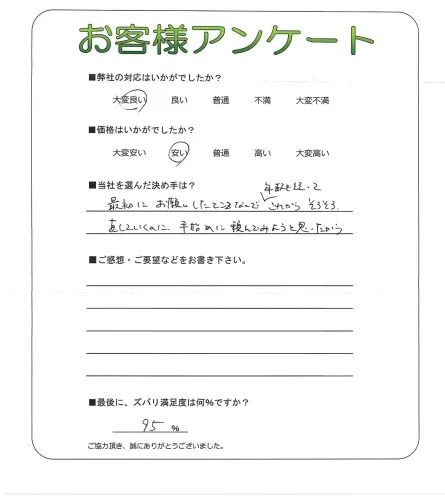 お客様アンケート
■弊社の対応はいかがでしたか？
大変良い 良い 普通 不満 大変不満
■価格はいかがでしたか？
大変安い 安い 普通 高い 大変高い
■当社を選んだ決め手は？
年数も経って
最初にお願いしたところなんで これから そろそろ
直していくのに 手始めに頼んでみようと思ったから
■ご感想・ご要望などをお書き下さい。
■最後に、ズバリ満足度は何%ですか？
95 %
ご協力頂き、誠にありがとうございました。